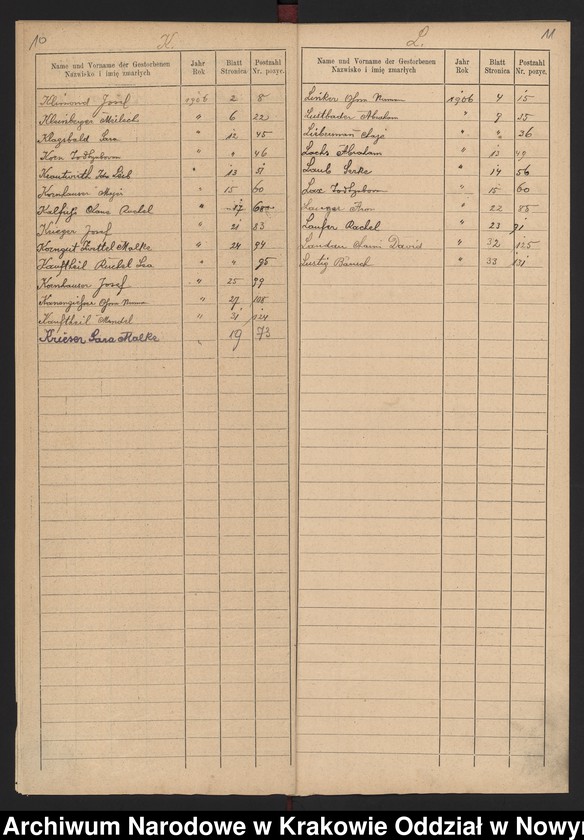 10
K.
Name und Vorname der Gestorbenen
Nazwisko i imię zmarłych
Jahr
Rok
Blatt
Stronica
Postzahl
Nr. pozyc.
Klimond Josef 1906 2 8
Klinberger Milech " 6 22
Klagsbald Sara " 12 45
Korn " " 46
13 51
Kornhauser Majer " 15 60
Kalfuss Chana Rachel " 17 68
Krieger Josef " 21 83
Korngut Zwittel Malke " 24 94
Kauftheil Ruchel Lea " " 95
Kornhauser Josef " 25 99
" 27 108
Kauftheil Mendel " 31 124
Krieser Sara Malke " 19 73
11
L.
Name und Vorname der Gestorbenen
Nazwisko i imię zmarłych
Jahr
Rok
Blatt
Stronica
Postzahl
Nr. pozyc.
1906 4 15
Lustbader Abraham " 9 35
Liberman " " 36
Lachs Abraham " 13 49
Laub " 14 56
Lax " 15 60
" 22 85
Laufer Rachel " 23 91
Landau David " 32 125
Lustig " 33 131
Archiwum Narodowe w Krakowie Oddział w Nowy